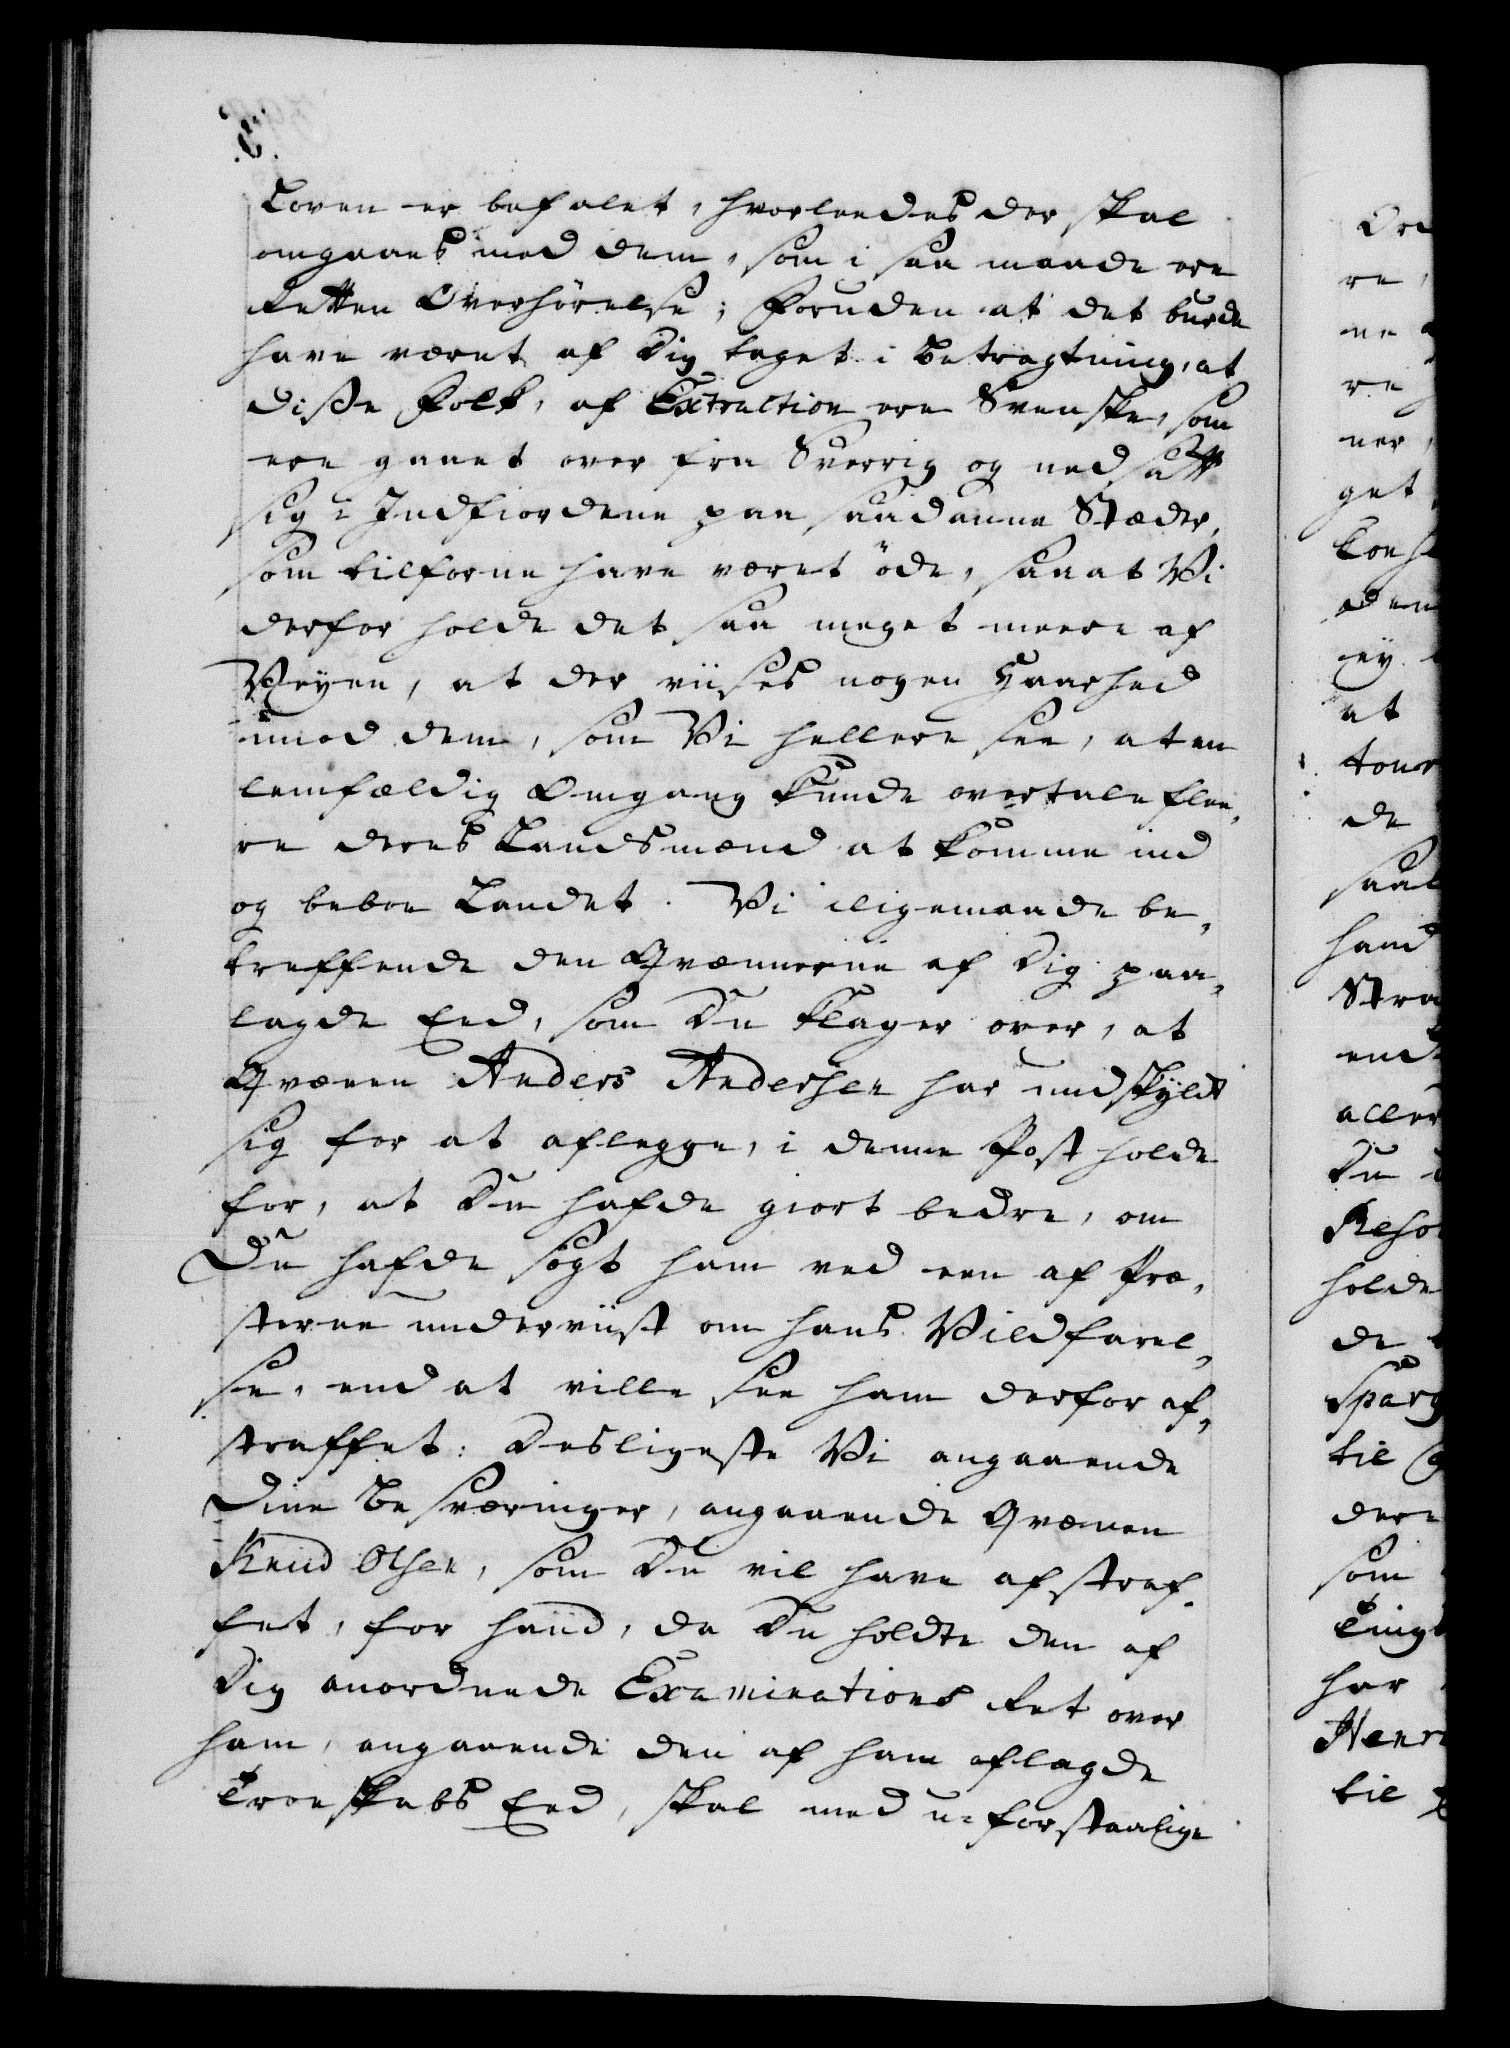 Loven er befalet, hvorleedes der skal
omgaaes med dem, som i saa maade ere
Retten Overhörelse; Foruden at det burde
have været af Dig taget i Betragtning, at
disse Folk, af Extraction ere Svenske, som
ere gaaet over fra Sverrig og nedsatt
sig i Indfiordene paa saadanne Stæder,
som tilforne have været öde, saa at Vi
derfor holde det saa meget meere af
Veyen, at der viises nogen Haarhed
imod dem, som Vi hellere see, at en
lemfældig Omgang kunde overtale flee,
re deres Landsmænd at komme ind
og beboe Landet. Vi iligemaade be,
treffende den Qvænnerne af Dig paa,
lagde Eed, som Du klager over, at
Qvænen Anders Andersen har undskyldt
sig for at aflegge, i denne Post holde
for, at Du hafde giort bedre, om
Du hafde sögt ham ved een af Præ,
sterne underviist om hans Vildfarel,
se, end at ville see ham derfor af,
straffet: Desligeste Vi angaaende
Dine Besværinger, angaaende Qvænen
Knud Olsen, som Du vil have afstraf,
fet, for hand, da Du holdte den af
Dig anordnede Examinations Ret over
ham, angaaende den af ham aflagde
Troeskabs Eed, skal med u-forstaalige